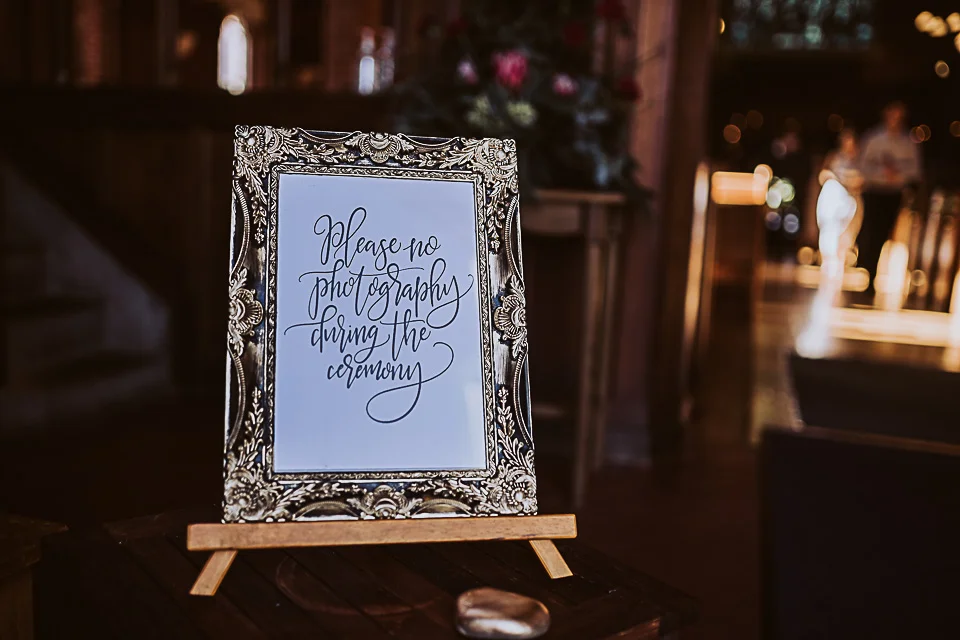 Please no
photography
during the
ceremony